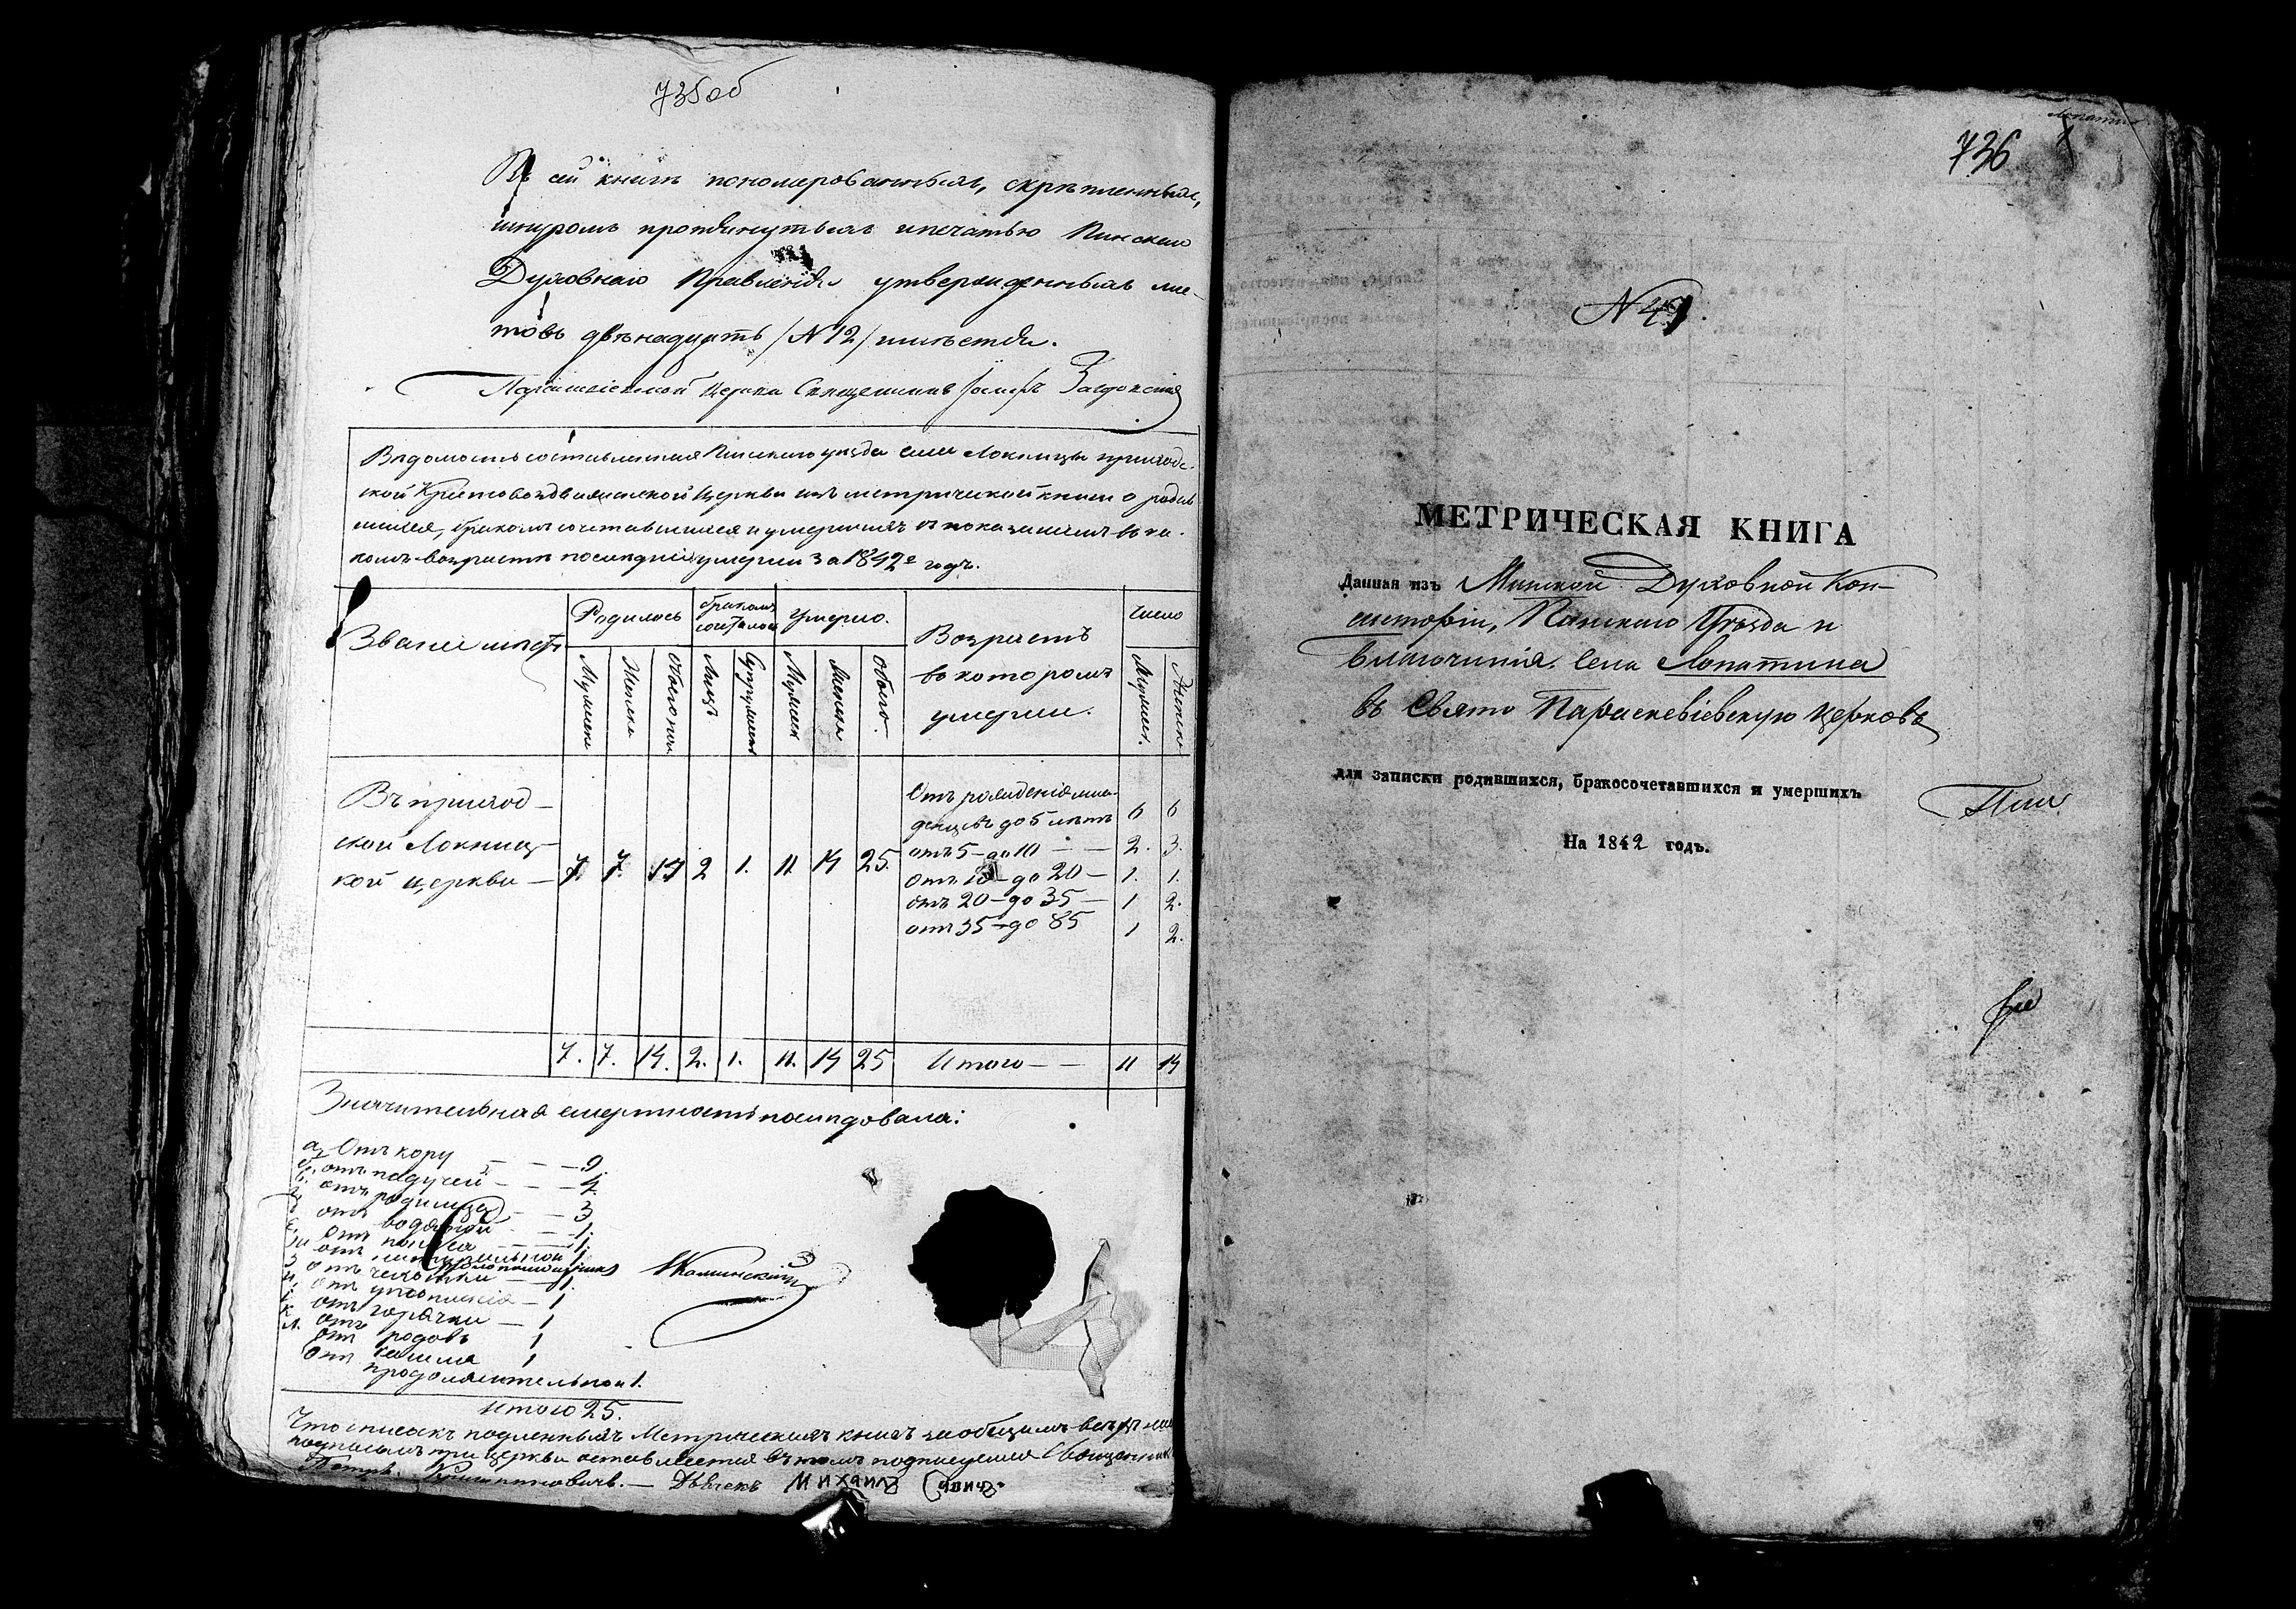 735об
Въ сей книгѣ пономерованныхъ, скрѣпленныхъ,
шнуромъ протянутыхъ и печатью Пинскаго
Духовнаго Правленія утвержденныхъ лис-
товъ двѣнадцать /N 12/ листовъ.
церкви Священникъ
Вѣдомость составленная Пинскаго уѣзда села Локницы приход-
ской Крестовоздвиженской Церкви изъ метрической книги о родив
шихся, бракомъ сочетавшихся и умершихъ съ показаніемъ въ ка-
комъ возрастѣ послѣдніе умерли за 1842е годъ.
Званіе мѣстъ
Родилось
бракомъ сочеталось
Умерло.
Возрастъ
въ которомъ
умерли.
число
Мужеска
Женска
Обоего пола
Лицъ
Супружествъ
Мужеска
Женска
Обоего.
Мужеск.
Женск.
Въ приход-
ской Локниц-
кой церкви — 7. 7. 14 2 1. 11 14 25.
Отъ рожденія мла-
денцевъ до 5 лѣтъ 6 6
отъ 5 - до 10 — — 2. 3.
отъ 10 - до 20 — 1. 1.
отъ 20 - до 35 — 1 2.
отъ 35 - до 85 1 2.
7. 7. 14. 2. 1. 11. 14 25 Итого — — 11 14
Значительная смертность послѣдовала:
а, Отъ кору — — 9.
б, отъ падучей — — 4.
отъ родимца — — 3
отъ водяной — — 1.
отъ поноса — — 1.
отъ — 1.
отъ чахотки — 1.
отъ утопленія — 1
отъ горячки — 1
отъ родовъ 1
отъ кашля 1
отъ продолжительной 1.
Итого 25.
Каминскій
Что списокъ подленныхъ Метрическихъ книгъ за общимъ всѣхъ
подписомъ при церкви оставляется въ томъ подписуемся Священникъ
Петръ — Дьячекъ Михаилъ Савичъ.
Лопатин
736
N 47.
МЕТРИЧЕСКАЯ КНИГА
Данная изъ Минской Духовной Кон-
систоріи, Пинскаго Уѣзда и
благочинія. Села Лопатина
въ Свято Параскевіевскую Церковь
для записки родившихся, бракосочетавшихся и умершихъ
На 1842 годъ.